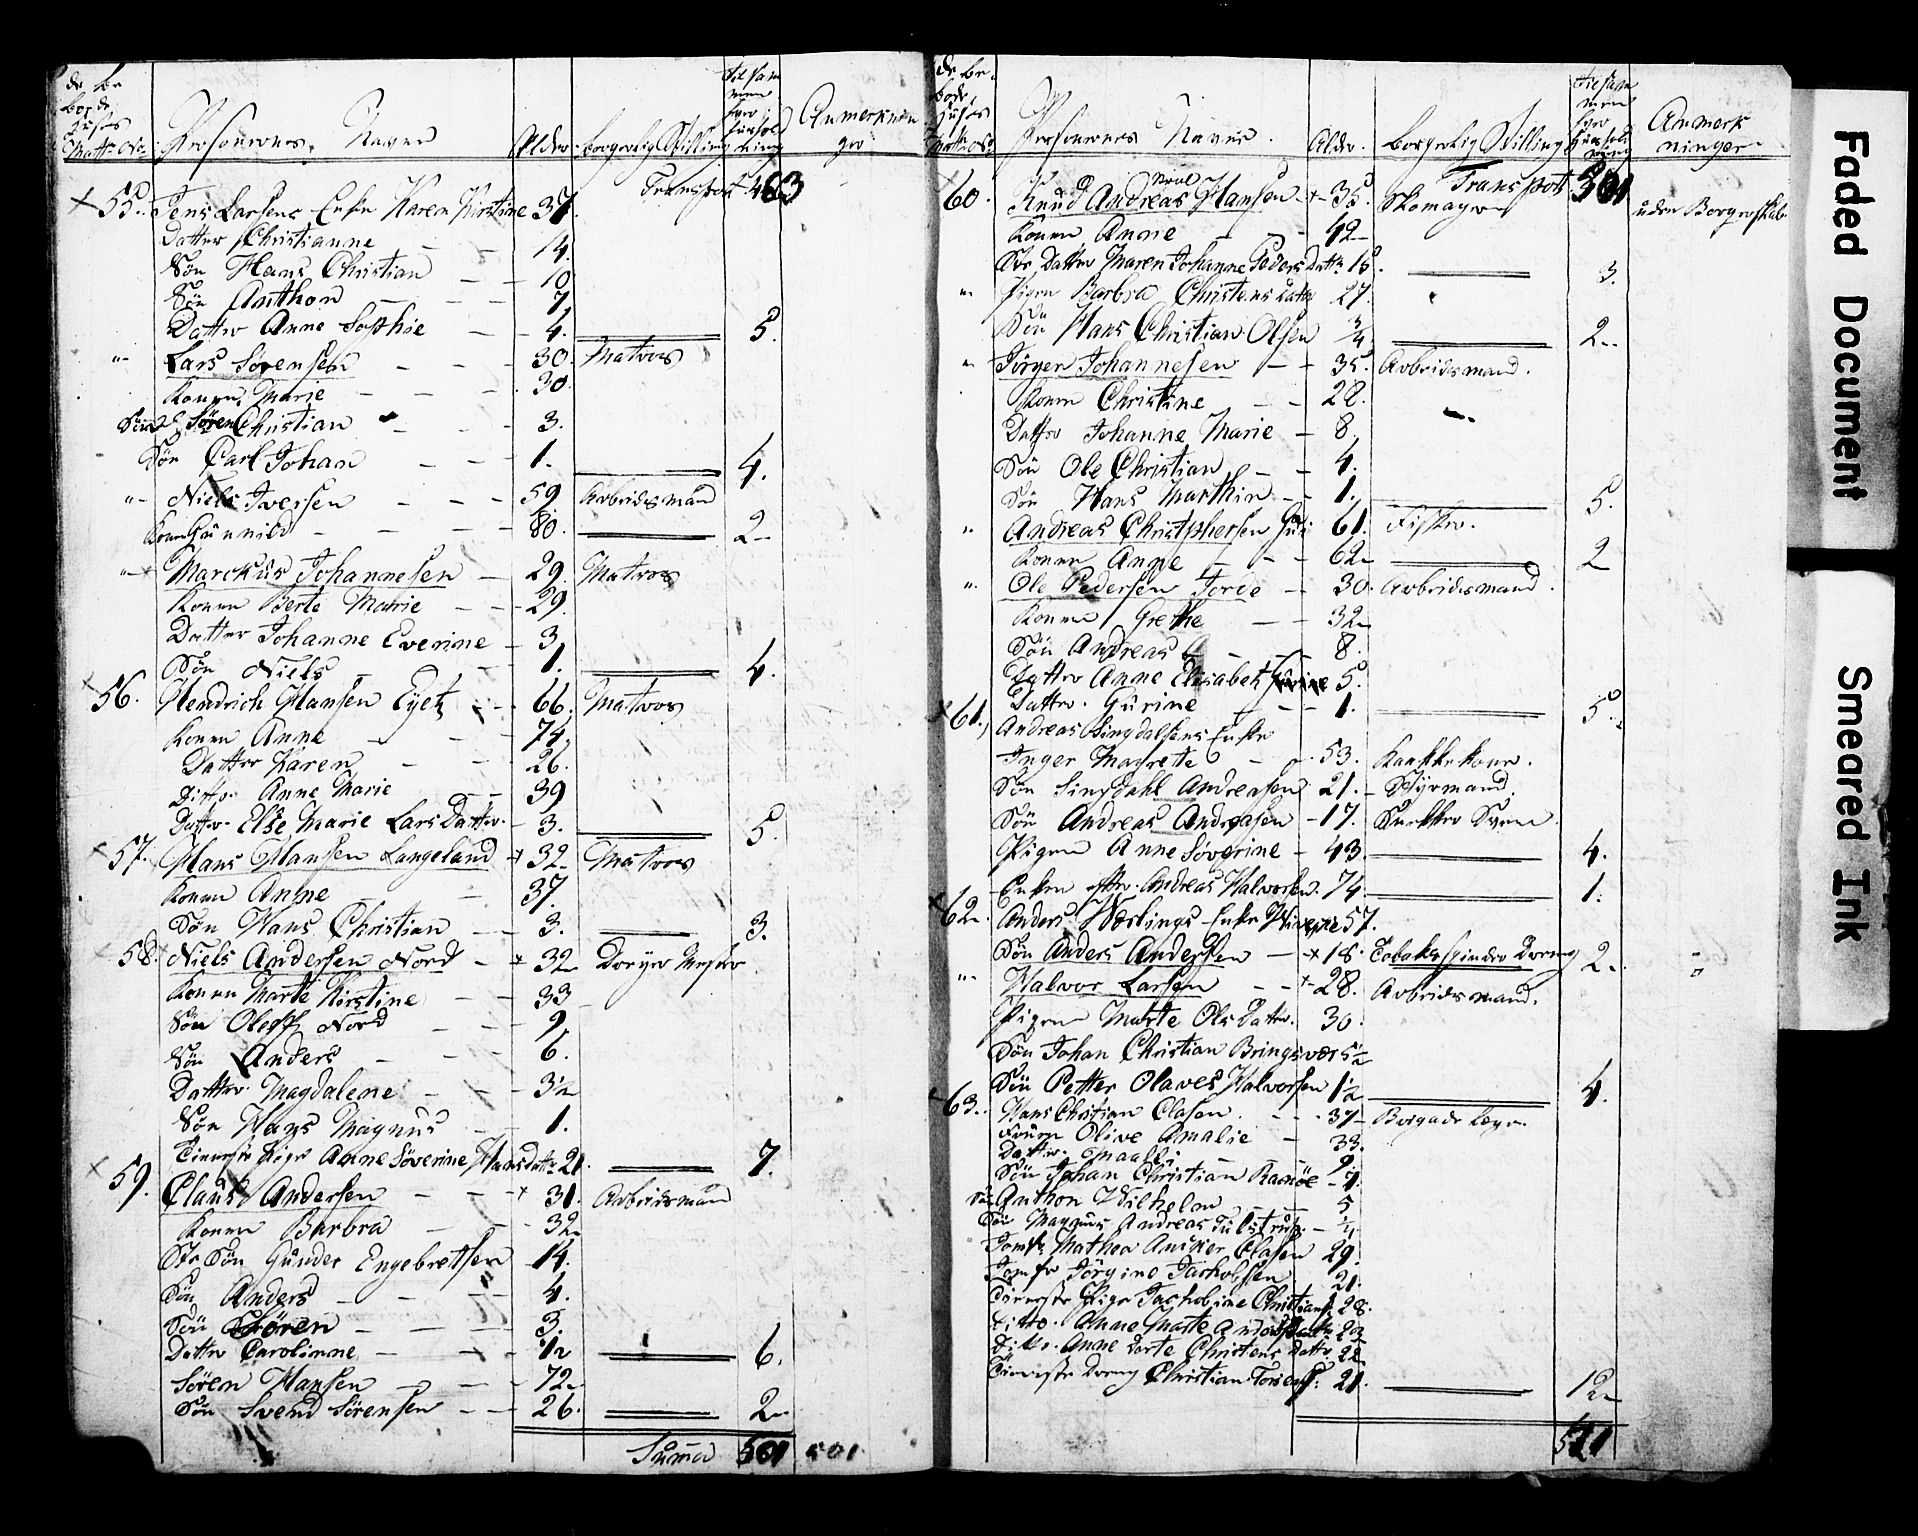 Personernes Navne Alder borgerlig Stilling Anmerkninger
Transport 463
55. Jens Larsens Enke Karen Kirstine 37.
Datter Christianne 14.
Søn Hans Christian 10
Søn Anthon 7
Datter Anne Sophie 4. 5.
Lars Sørensen 30. Matros
Konen Marie 30.
Søn Søren Christian 3.
Søn Carl Johan 1. 4.
Niels Iversen 59 Arbeidsmand
Konen Gunnild 80. 2
Marckus Johannesen 29. Matros
Konen Berte Marie 29.
Datter Johanne Everine 3
Søn Niels 1. 4.
56. Hendrich Hansen Eyek 66. Matros
Konen Anne 74.
Datter Karen 26.
Ditto Anne Marie 39
Datter Else Marie Lars Datter 3. 5.
57. Hans Hansen Langeland 32 Matros
Konen Anne 37.
Søn Hans Christian 3. 3.
58. Niels Andersen Nord 32 Dreyer Mester
Konen Marte Kirstine 33
Søn Oleff Nord 9
Søn Anders 6.
Datter Magdalene 3½
Søn Hans Magnus 1.
Tieneste Pige Anne Söverine Hansdatter 21. 7.
59. Claus Andersen 31. Arbeidsmand
Konen Barbra 32
St. Søn Gunder Engebrettsen 14.
Søn Anders 4.
Søn Søren 3.
Datter Carolinne ½ 6.
Sören Hansen 72
Søn Svend Sörensen 26. 2
Suma 501 501
Personernes Navne Alder. borgerlig Stilling Anmerkninger
Transport 501
60. Knud Andreas Hansen 35. Skomager uden Borgerskab
Konen Anne 42
St. Datter Maren Johanne Peders Datter 15. 3.
Pigen Barbra Christens Datter 27.
Søn Hans Christian Olsen ¾ 2
Jörgen Johannesen 35. Arbeidsmand.
Konen Christine 28.
Datter Johanne Marie 8
Søn Ole Christian 4.
Søn Hans Marthin 1. 5.
Andreas Christphersen 61. Fisker.
Konen Anne 62 2
Ole Pedersen Jorde 30. Arbeidsmand.
Konen Grethe 32
Søn Andreas 8.
Datter Anne Elisabeth 5.
Datter Gurine 1. 5.
61. Andreas Singdalsens Enke
Inger Magrete 53.
Søn Singdahl Andreasen 21. Styrmand.
Søn Andreas Andreasen 17.
Pigen Anne Söverine 43. 4.
Enken efter Andreas Halvorsen 74. 1.
62. Anders Wærlings Enke 57.
Søn Anders Andersen 18. Tobakspinder Dreng 2.
Halvor Larsen 28. Arbeidsmand.
Pigen Marte Ols Datter. 30.
Søn Johan Christian Bringsvær 5½
Søn Petter Olaves Halvorsen ½ 4.
63. Hans Christian Clasen 37 Brigade Læge.
Fruen Olive Amalie 33.
Datter Maalli 9
Søn Johan Christian Ramöe 7.
Søn Anthon Wilhelm 5
Søn Magnus Andreas Tulstrup ¼
Jomfr Mathea Ancker Clasen 29.
Jomfr Jörgine Jachobsen 21.
Tieneste Pige Jachobine Christians 28.
Ditto. Anne Marte 23
Ditto. Anne Dorte Christens Datter 22
Tieneste Dreng Christian Torsens. 21. 12
521
Faded Document
Smeared Ink